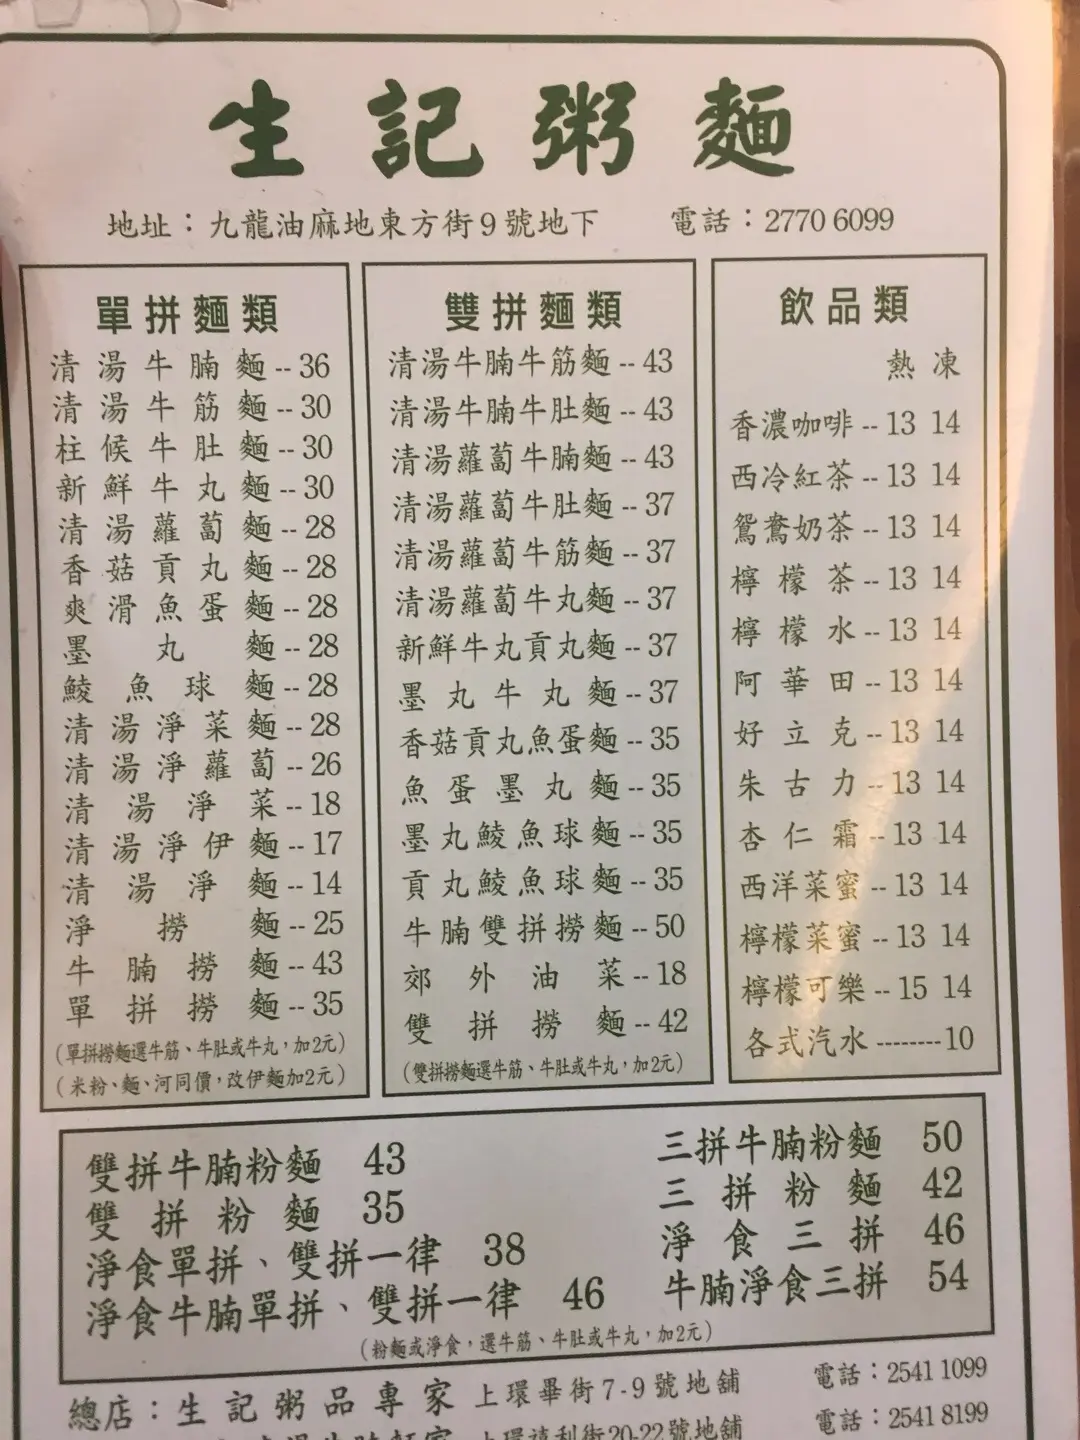 生記粥麵
地址：九龍油麻地東方街9號地下 電話：2770 6099
單拼麵類
清湯牛腩麵--36
清湯牛筋麵--30
柱候牛肚麵--30
新鮮牛丸麵--30
清湯蘿蔔麵--28
香菇貢丸麵--28
爽滑魚蛋麵--28
墨丸麵--28
鯪魚球麵--28
清湯淨菜麵--28
清湯淨蘿蔔--26
清湯淨菜--18
清湯淨伊麵--17
清湯淨麵--14
淨撈麵--25
牛腩撈麵--43
單拼撈麵--35
（單拼撈麵選牛筋、牛肚或牛丸，加2元）
（米粉、麵、河同價，改伊麵加2元）
雙拼麵類
清湯牛腩牛筋麵--43
清湯牛腩牛肚麵--43
清湯蘿蔔牛腩麵--43
清湯蘿蔔牛肚麵--37
清湯蘿蔔牛筋麵--37
清湯蘿蔔牛丸麵--37
新鮮牛丸貢丸麵--37
墨丸牛丸麵--37
香菇貢丸魚蛋麵--35
魚蛋墨丸麵--35
墨丸鯪魚球麵--35
貢丸鯪魚球麵--35
牛腩雙拼撈麵--50
郊外油菜--18
雙拼撈麵--42
（雙拼撈麵選牛筋、牛肚或牛丸，加2元）
飲品類
熱 凍
香濃咖啡--13 14
西冷紅茶--13 14
鴛鴦奶茶--13 14
檸檬茶--13 14
檸檬水--13 14
阿華田--13 14
好立克--13 14
朱古力--13 14
杏仁霜--13 14
西洋菜蜜--13 14
檸檬菜蜜--13 14
檸檬可樂--15 14
各式汽水--------10
雙拼牛腩粉麵 43
雙拼粉麵 35
淨食單拼、雙拼一律 38
淨食牛腩單拼、雙拼一律 46
三拼牛腩粉麵 50
三拼粉麵 42
淨食三拼 46
牛腩淨食三拼 54
（粉麵或淨食，選牛筋、牛肚或牛丸，加2元）
總店：生記粥品專家 上環畢街7-9號地舖 電話：2541 1099
上環禧利街20-22號地舖 電話：2541 8199